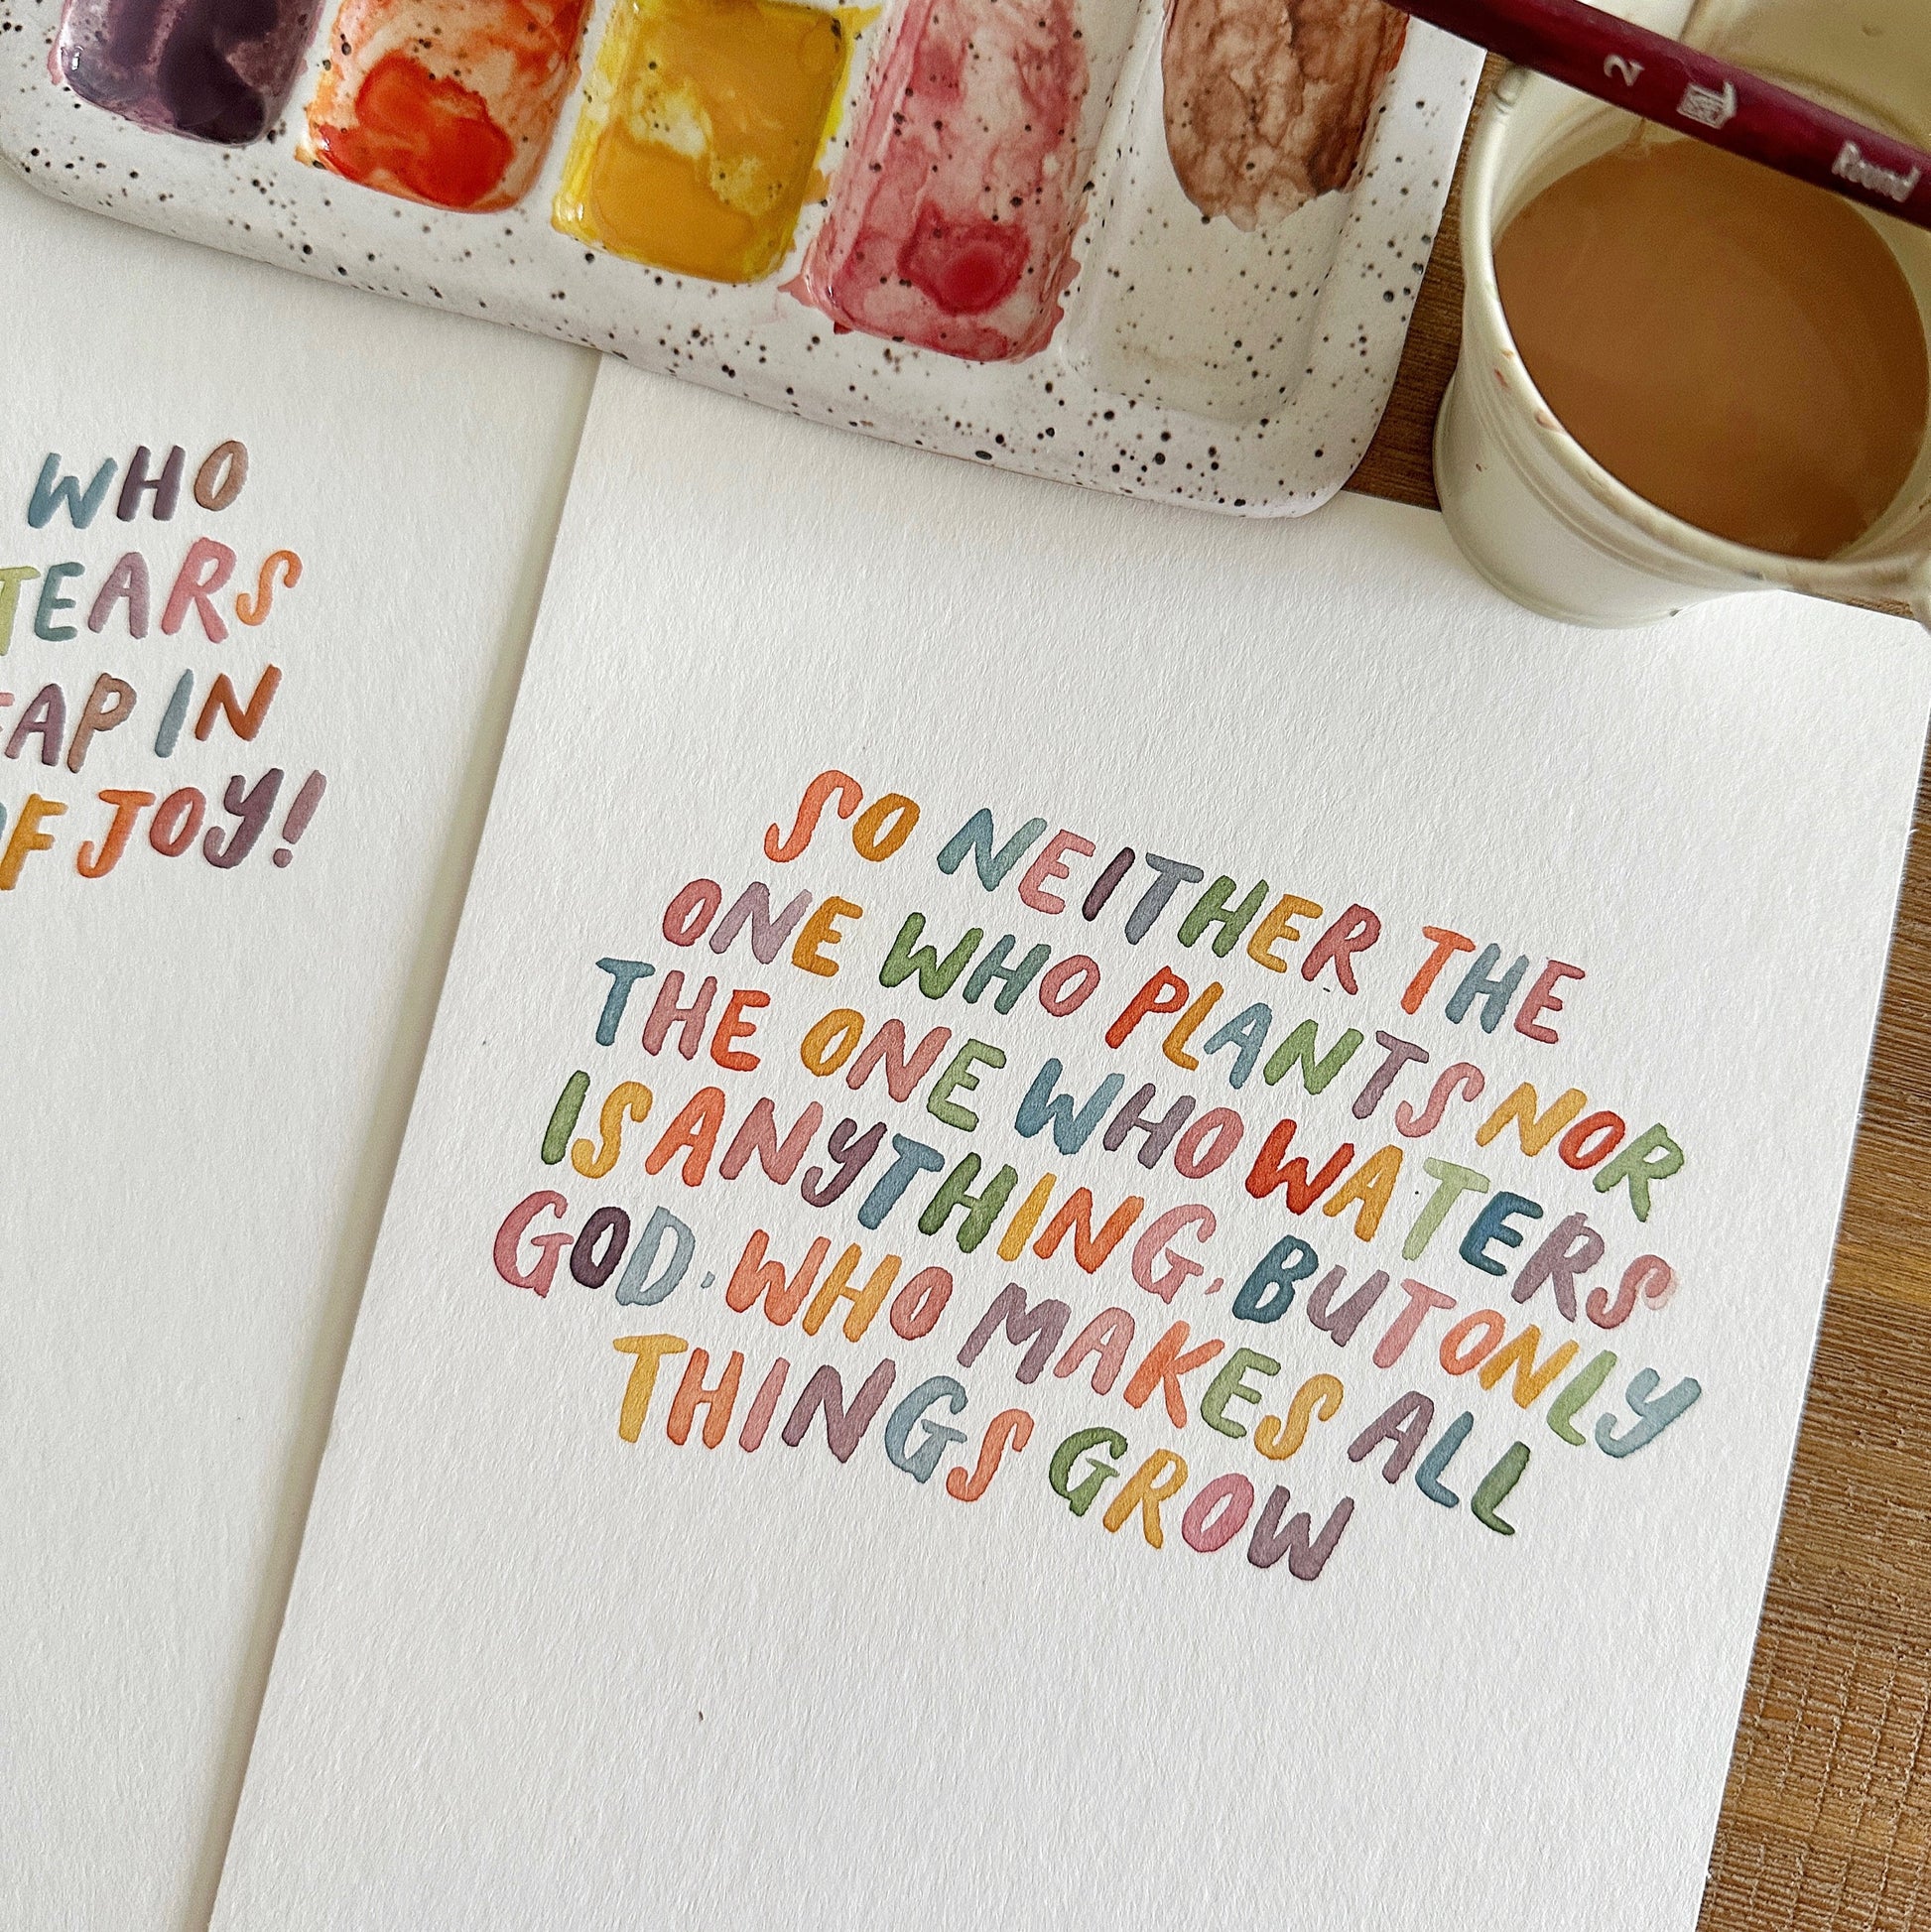 2 Round
WHO
TEARS
IN
OF JOY!
SO NEITHER THE
ONE WHO PLANTS NOR
THE ONE WHO WATERS
IS ANYTHING, BUT ONLY
GOD, WHO MAKES ALL
THINGS GROW